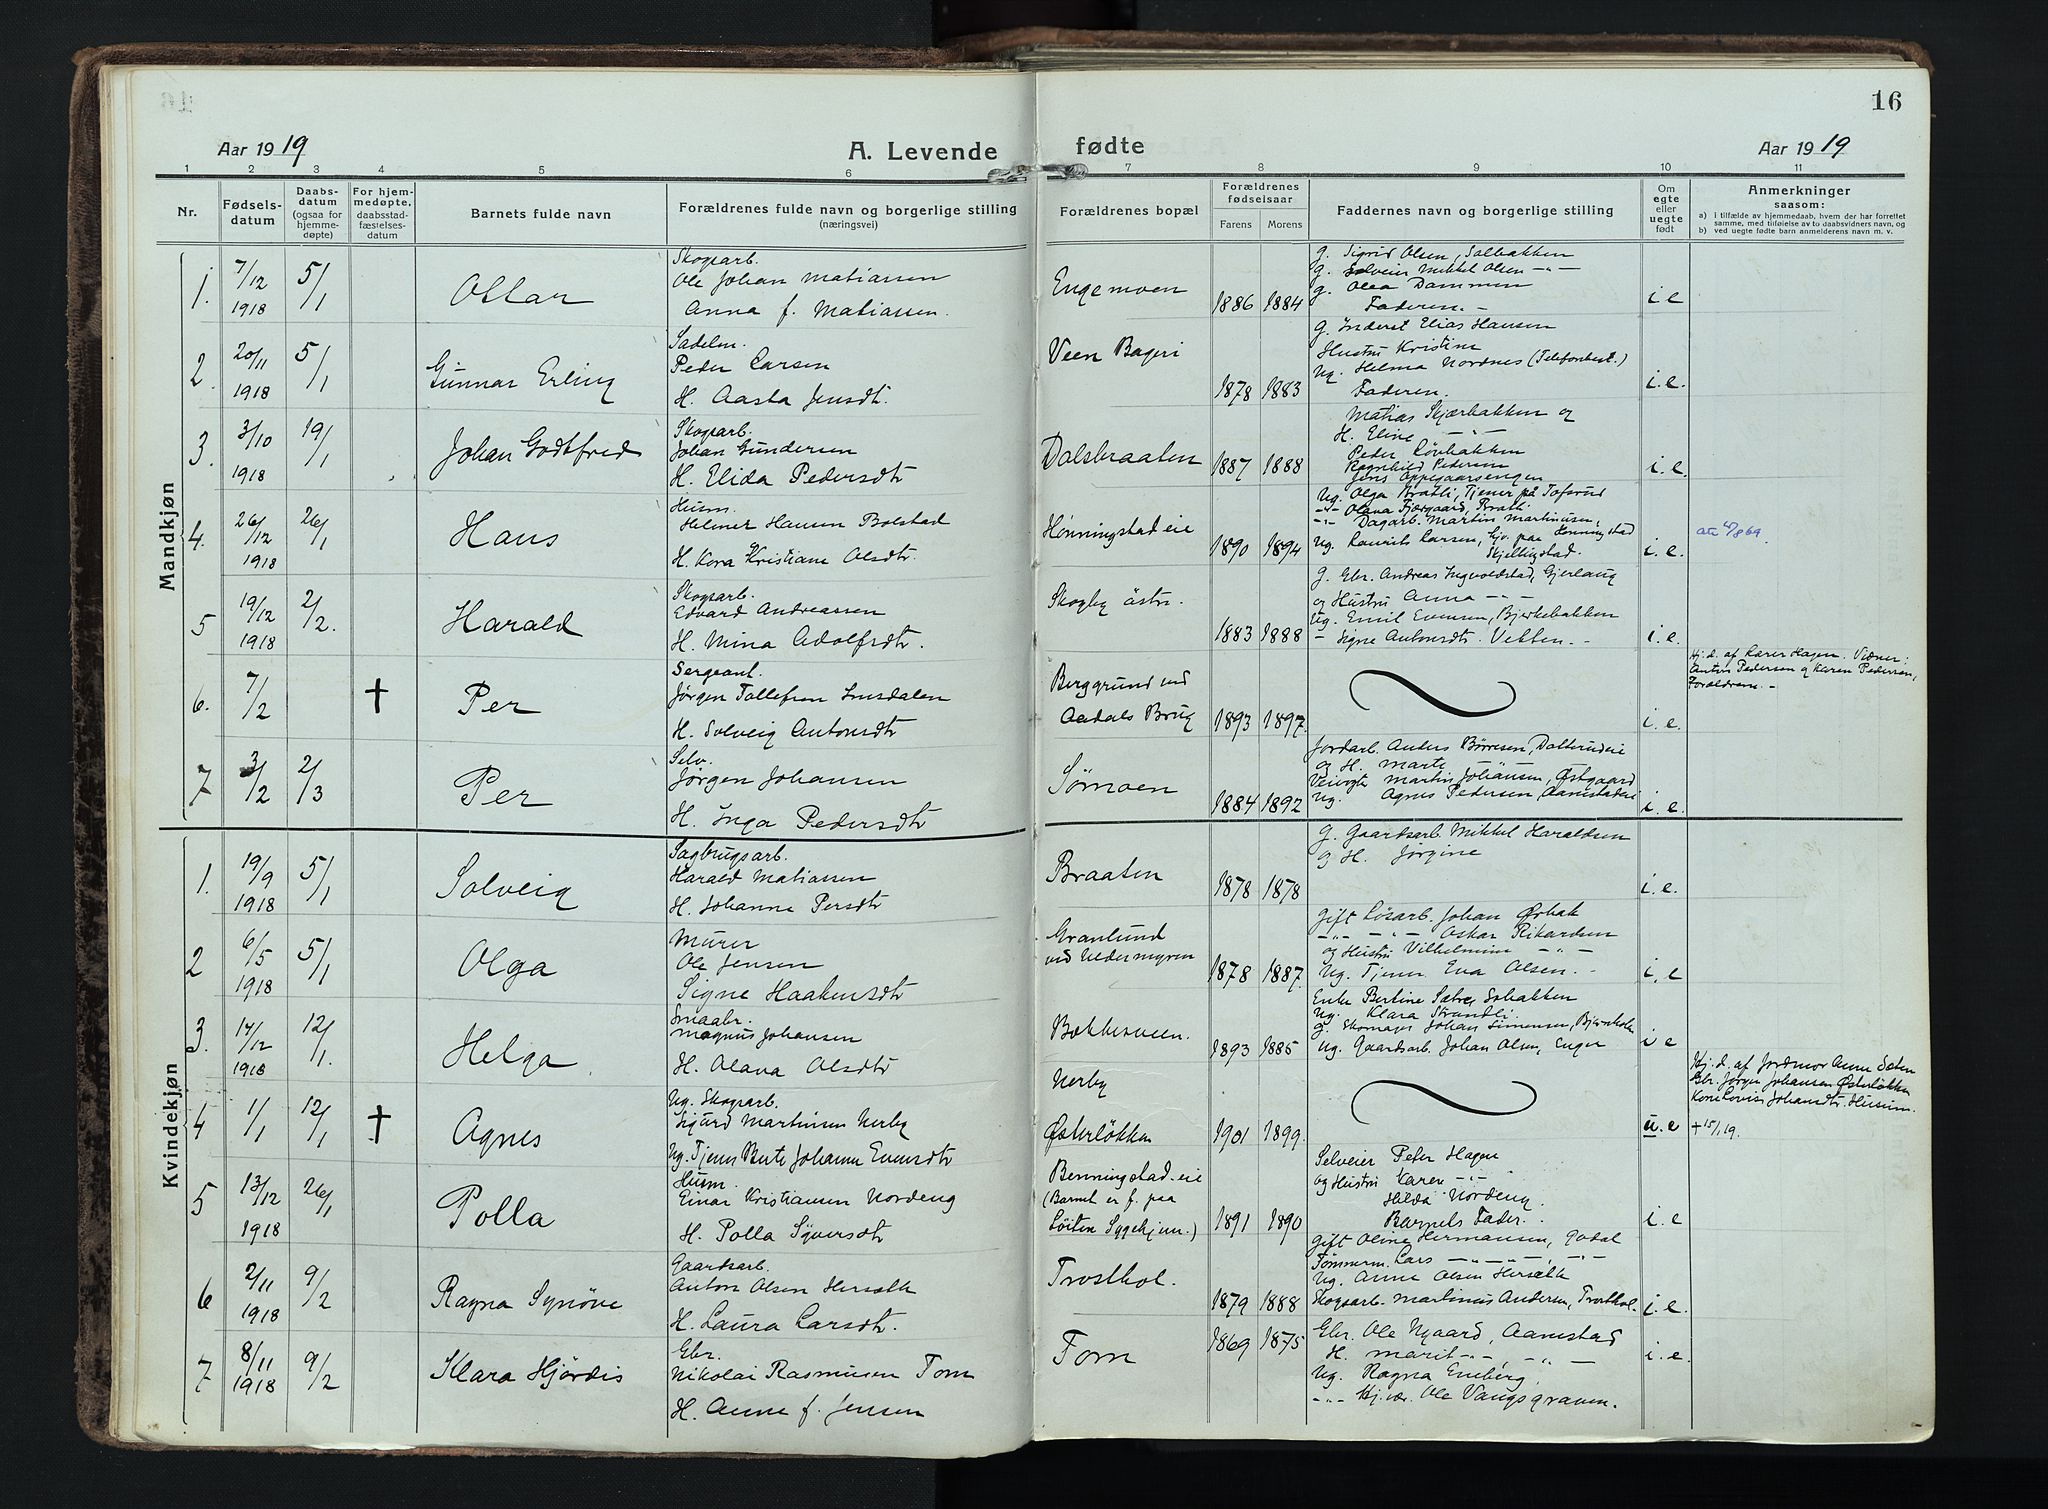 16
Aar 1919
A. Levende fødte
Aar 1919
1 2 3 4 5 6 7 8 9 10 11
Nr.
Fødsels-
datum
Daabs-
datum
(ogsaa for
hjemme-
døpte)
For hjem-
medøpte,
daabsstad-
fæstelses-
datum
Barnets fulde navn
Forældrenes fulde navn og borgerlige stilling
(næringsvei)
Forældrenes bopæl
Forældrenes
fødselsaar
Farens Morens
Faddernes navn og borgerlige stilling
Om
egte
eller
uegte
født
Anmerkninger
saasom:
a) i tilfælde av hjemmedaab, hvem der har forrettet
samme, med tilføielse av to daabsvidners navn, og
b) ved uegte fødte barn anmelderens navn m. v.
Mandkjøn
1. 7/12 1918 5/1
Ottar
Skogsarb.
Ole Johan Matiassen
Anna f. Matiassen.
Engemoen
1886 1884
g. Sigrid Olsen, Solbakken
g. Selveier Mikkel Olsen -"-
g. Olea Dammen
Faderen. -
i. e
2. 20/11 1918 5/1
Gunnar Erling
Sadelm.
Peder Larsen
H. Aasta Jensdt.
Veen Bageri
1878 1883
g. Inderst Elias Hansen
Hustru Kristine
Ug. Helma Nordnes (Telefonbest.)
Faderen.
i. e.
3. 3/10 1918 19/1
Johan Godtfred
Skogsarb.
Johan Gundersen
H. Elida Pedersdtr
Dalsbraaten
1887 1888
Matias Skjærbakken og
H. Eline -"-
Peder Løvbakken
Ragnhild Pedersen
Jens Oppegaardsengen
i. e.
4. 26/12 1918 26/1
Hans
Husm.
Helmer Hansen Bolstad
H. Kora Kristiane Olsdtr.
Hønningstadeie
1890 1894
Ug. Olga Bratli, Tjener på Tofsrud
-"- Olava Fjærgaard, Bratli
-"- Dagarb. Martin Martinusen,
Ug. Laurits Larsen, Gjv. paa Hønningstad
Skjellingstad.
i. e.
5 19/12 1918 2/2.
Harald
Skogsarb.
Edvard Andreassen
H. Mina Adolfsdtr.
Skogby östre.
1883 1888
g. Gbr. Andreas Ingvoldstad, Gjerlaug
og Hustru Anna -"-
Ug. Emil Evensen, Bjerkebakken
- Signe Antonsdtr. Vetten. -
i. e.
6. 7/2 †
Per
Sergeant.
Jørgen Tollefsen Imsdalen
H. Solveig Antonsdtr
Berggrund ved
Aadals Brug
1893 1897.
i. e.
Hj. d. af Karen Hagen. Vidner:
Anton Pedersen og Karen Pedersen,
Forældrene. -
7 3/2 2/3
Per
Selv.
Jørgen Johansen
H. Inga Pedersdtr
Sømoen
1884 1892
Jordarb. Anders Børresen, Dalterudeie
og H. Marte -"-
Veivogte Martin Johansen, Østgaard
Ug. Agnes Pedersen, Aamstadeie
i. e.
Kvindekjøn
1. 19/9 1918 5/1
Solveig
Sagbrugsarb.
Harald Matiassen
H. Johanne Persdtr
Braaten
1878 1878
g. Gaardsarb. Mikkel Haraldsen
og H. Jørgine
i. e.
2 6/5 1918 5/1
Olga
Murer
Ole Jensen
Signe Haakensdtr
Granlund
ved Uldermyren
1878 1887.
Gift Løsarb. Johan Ørbak
-"- -"- Oskar Rikardsen
og Hustru Vilhelmine -"-
Ug. Tjener Eva Olsen. -
i. e
3. 14/12 1918 12/1.
Helga
Smaabr.
Magnus Johansen
H. Olava Olsdtr
Bækkesveen.
1893 1885
Enke Bertine Sætre, Sobakken
Ug. Klara Strandli.
g. Skomager Johan Simensen, Bjørnholen
Ug. Gaardsarb. Johan Olsen, Enger
i e
4 1/1 12/1 †
Agnes
Ug. Skogsarb.
Sigurd Martinsen Nerby
Ug. Tjener Berte Johanne Evensdtr
Nerby
Østerløkken
1901 1899.
u. e
Hj. d. af Jordmor Anne Sæten
Gbr. Jørgen Johansen Østerløkken
Kone Lovise Johansdtr. Husum.
+ 15/1 19.
5 13/12 1918 26/1
Polla
Husm.
Einar Kristiansen Nordeng
H. Polla Syversdtr
Benningstad-eie
(Barnet er f. paa
Löiten Sygehjem.)
1891 1890
Selveier Peter Hagen
og Hustru Karen -"-
Hilda Nordeng.
Barnets Fader.
i. e
6 2/11 1918 9/2
Ragna Synøve
Gaardsarb.
Anton Olsen Hersæth
H. Laura Larsdtr.
Trosthol.
1879 1888
Gift Oline Hermansen, Godal
Tømmerm. Lars -"- , -"-
Ug. Anne Olsen Hersæth
Skogsarb. Martinus Andersen, Trosthol.
i. e.
7 8/11 1918 9/2
Klara Hjørdis
Gbr.
Nikolai Rasmussen Tom
H. Anne f. Jensen
Tom
1869 1875
Gbr. Ole Nygaard, Aamstad
H. Marit -"- , -"-
Ug. Ragna Eneberg,
-"- Hj. vær. Ole Vangsgraven.
i. e.